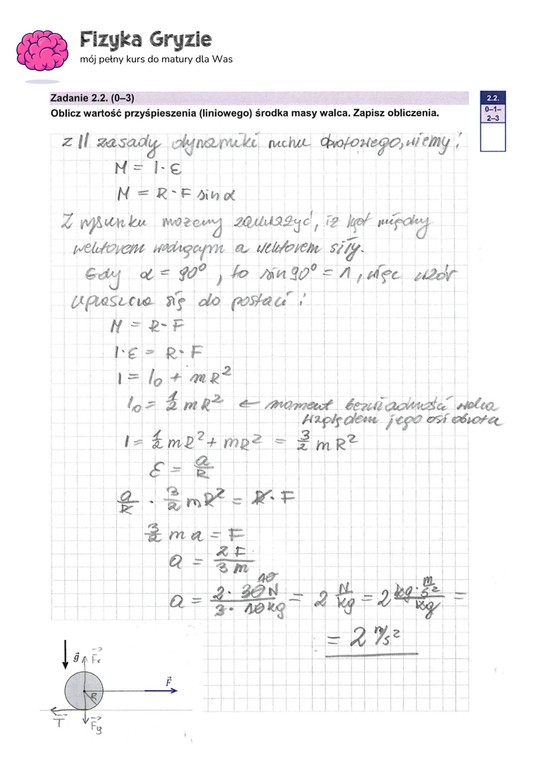 Fizyka Gryzie
mój pełny kurs do matury dla Was
Zadanie 2.2. (0–3)
Oblicz wartość przyśpieszenia (liniowego) środka masy walca. Zapisz obliczenia.
2.2.
0–1–
2–3
z II zasady dynamiki ruchu obrotowego, wiemy:
M = I·ε
M = R·F sinα
Z rysunku możemy zauważyć, iż kąt między
wektorem wodzącym a wektorem siły.
Gdy α = 90°, to sin90° = 1, więc wzór
upraszcza się do postaci:
M = R·F
I·ε = R·F
I = I₀ + mR²
I₀ = 1/2 mR² ← moment bezwładności walca
względem jego osi obrotu
I = 1/2 mR² + mR² = 3/2 mR²
ε = a/R
a/R · 3/2 mR² = R·F
3/2 m a = F
a = 2F/3m
10
a = 2·30N/3·10kg = 2 N/kg = 2 kg·m/s²/kg =
= 2 m/s²
g Fr
F
R
T Fg